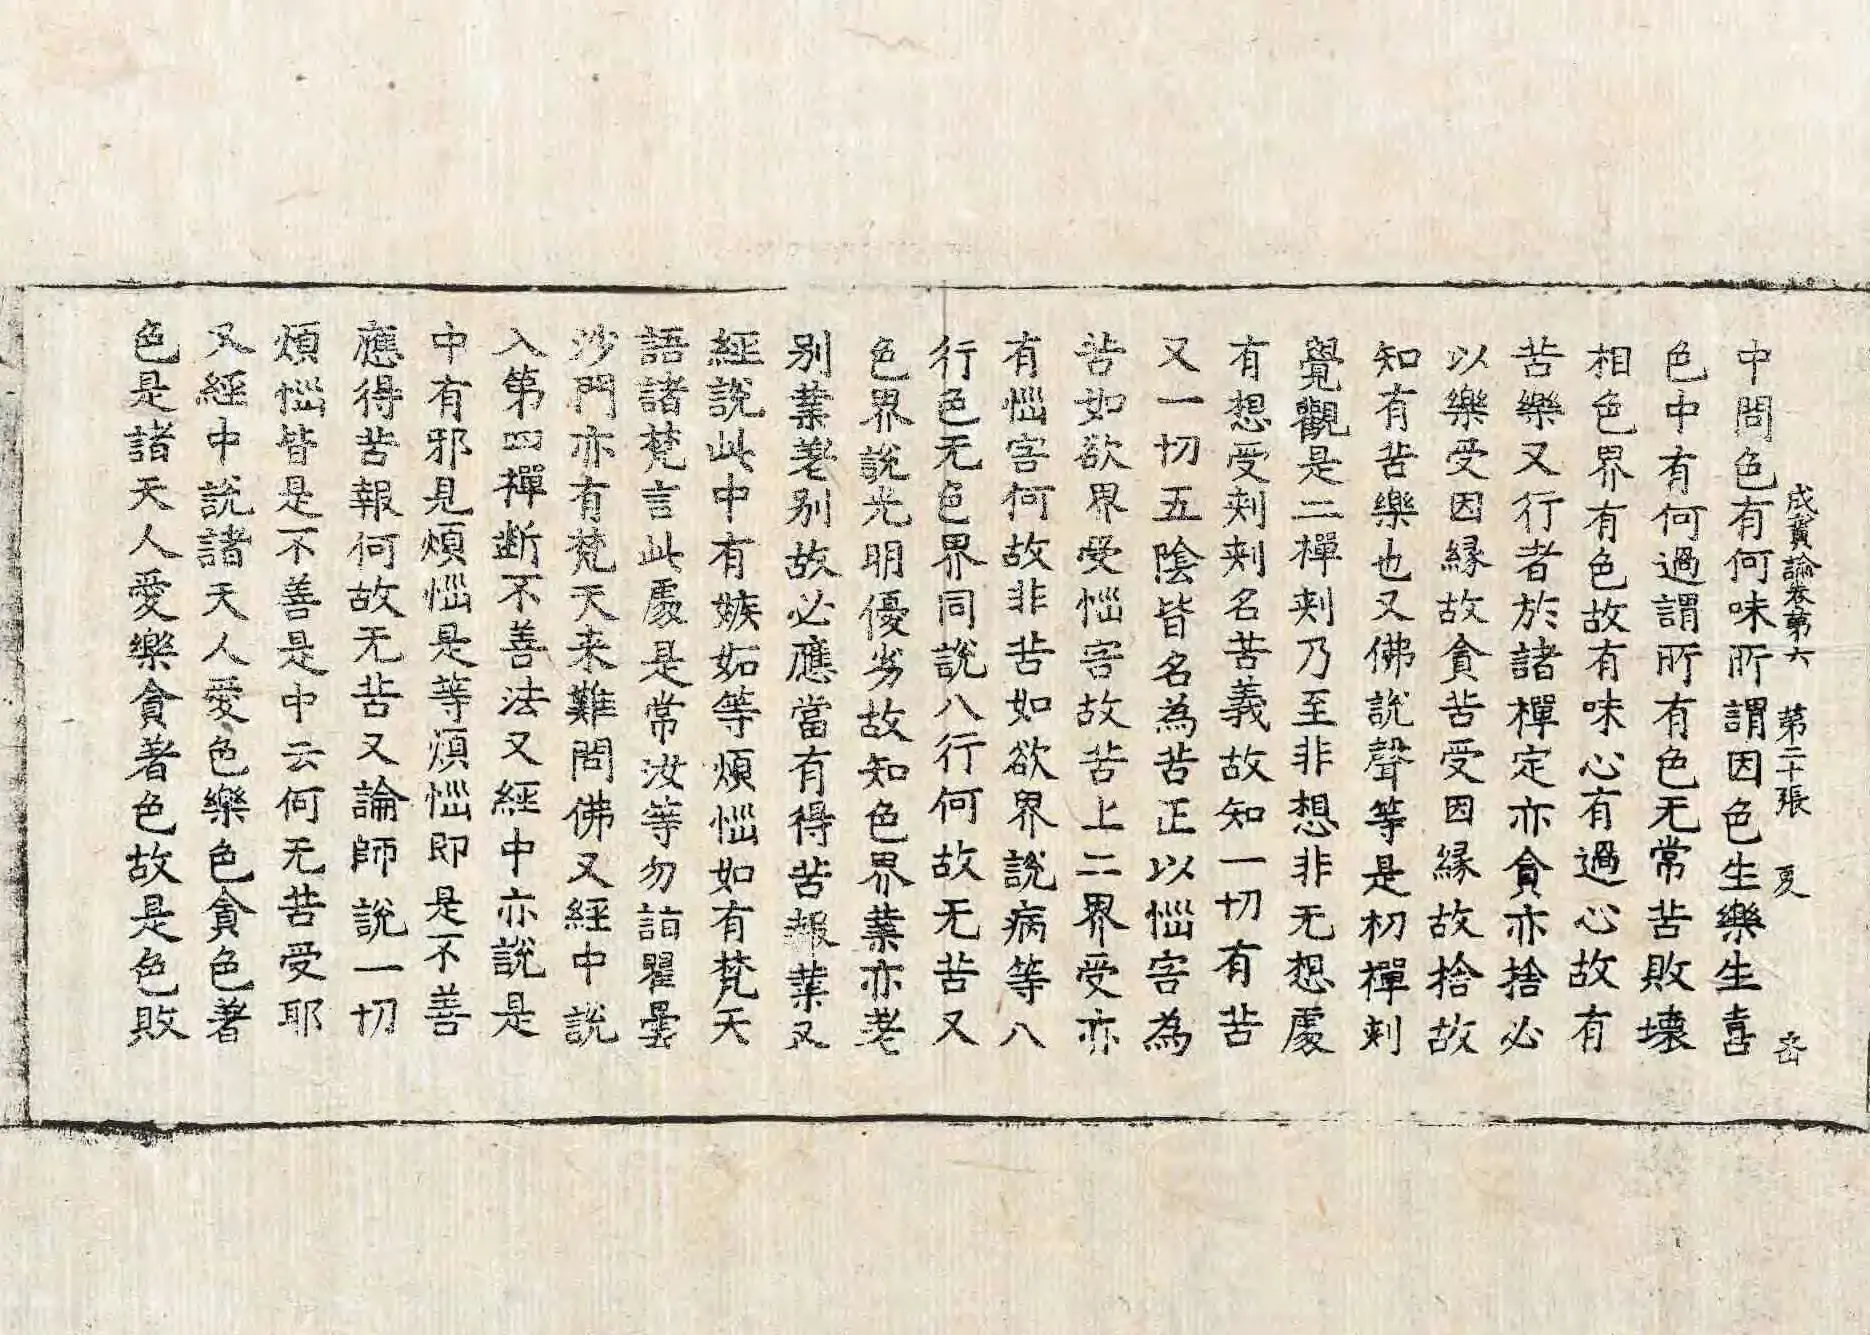 成實論卷第六 第二十張 夏
中問色有何味所謂因色生樂生喜
色中有何過謂所有色无常苦敗壞
相色界有色故有味心有過心故有
苦樂又行者於諸禪定亦貪亦捨必
以樂受因緣故貪苦受因緣故捨故
知有苦樂也又佛說聲等是初禪刾
覺觀是二禪刾乃至非想非无想處
有想受刾刾名苦義故知一切有苦
又一切五陰皆名為苦正以惱害為
苦如欲界受惱害故苦上二界受亦
有惱害何故非苦如欲界說病等八
行色无色界同說八行何故无苦又
色界說光明優劣故知色界業亦差
別業差別故必應當有得苦報業又
經說此中有嫉妬等煩惱如有梵天
語諸梵言此處是常汝等勿詣瞿曇
沙門亦有梵天来難問佛又經中說
入第四禪断不善法又經中亦說是
中有邪見煩惱是等煩惱即是不善
應得苦報何故无苦又論師說一切
煩惱皆是不善是中云何无苦受耶
又經中說諸天人愛色樂色貪色著
色是諸天人愛樂貪著色故是色敗